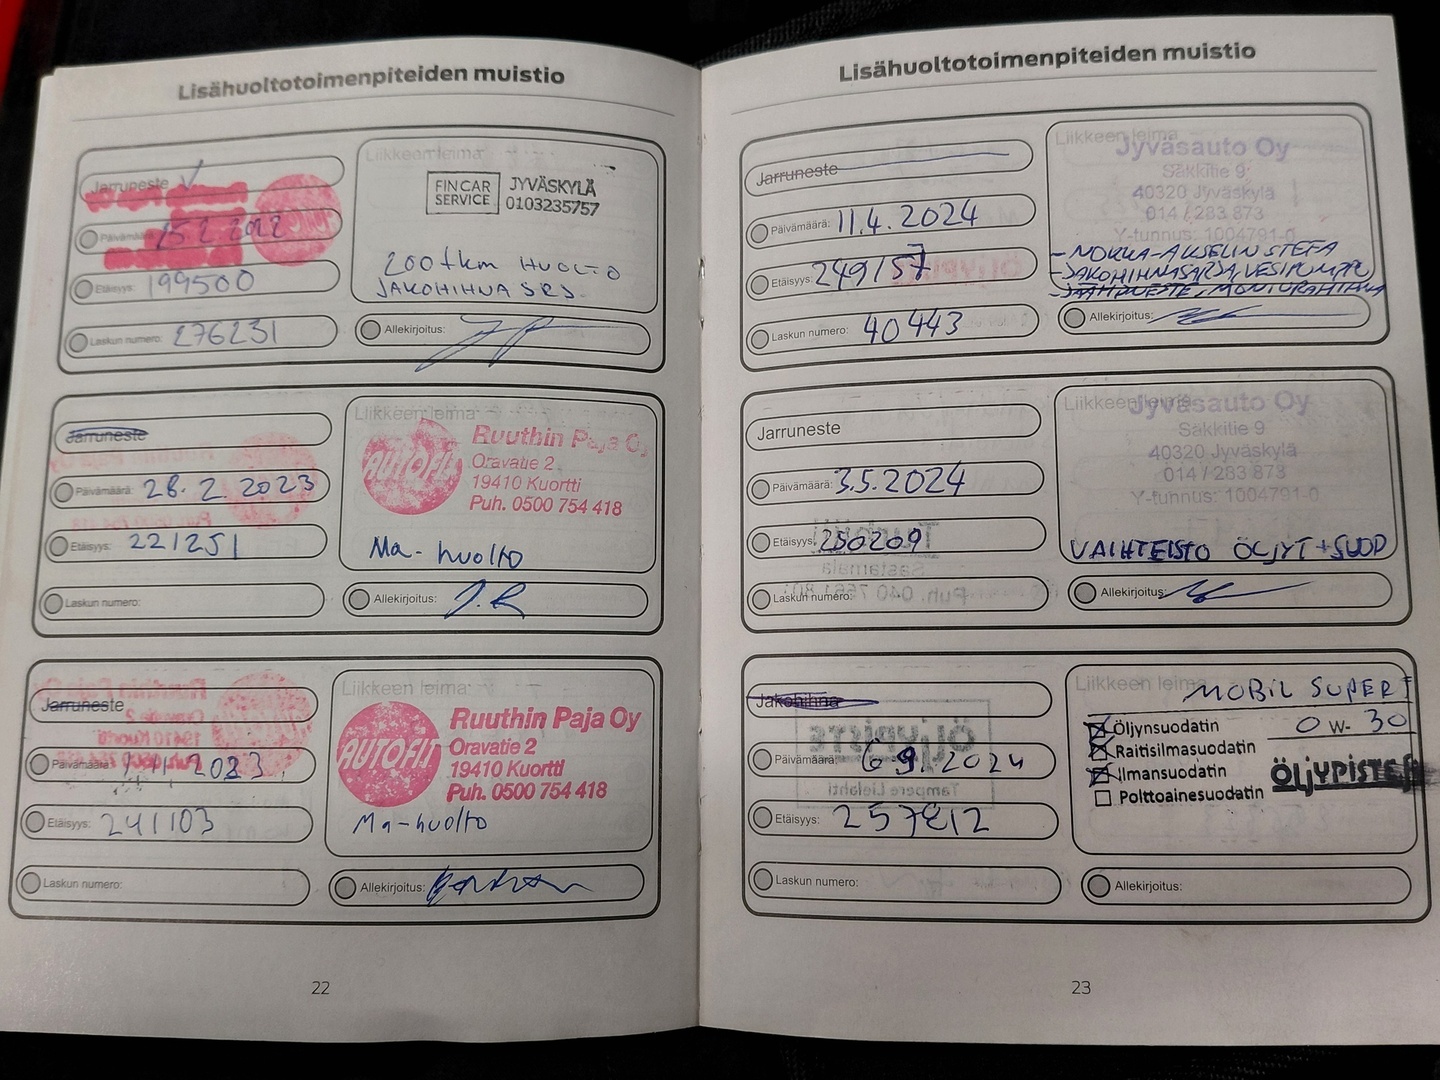 Lisähuoltotoimenpiteiden muistio
Jarruneste
Päivämäärä:
199500
Etäisyys:
Laskun numero: 276231
Liikkeen leima
FINCAR SERVICE
JYVÄSKYLÄ
0103235757
200tkm HUOLTO
JAKOHIHNA SRJ.
Allekirjoitus:
Jarruneste
Päivämäärä: 28.2.2023
Etäisyys: 221251
Laskun numero:
Liikkeen leima
AUTOFIT
Ruuthin Paja Oy
Oravatie 2
19410 Kuortti
Puh. 0500 754 418
Ma-huolto
Allekirjoitus: J.R
Jarruneste
Päivämäärä: 2023
Etäisyys: 241103
Laskun numero:
Liikkeen leima
AUTOFIT
Ruuthin Paja Oy
Oravatie 2
19410 Kuortti
Puh. 0500 754 418
Ma-huolto
Allekirjoitus:
22
Lisähuoltotoimenpiteiden muistio
Jarruneste
Päivämäärä: 11.4.2024
Etäisyys: 249157
Laskun numero: 40443
Liikkeen leima
Jyväsauto Oy
Säkkitie 9
40320 Jyväskylä
014 / 283 873
Y-tunnus: 1004791-0
- NOKKA-AKSELIN STEFA
- JAKOHIHNASARJA, VESIPUMPPU
- JÄÄHDNESTE, MONIURAHIHNA
Allekirjoitus:
Jarruneste
Päivämäärä: 3.5.2024
Etäisyys: 250209
Laskun numero:
Liikkeen leima
Jyväsauto Oy
Säkkitie 9
40320 Jyväskylä
014 / 283 873
Y-tunnus: 1004791-0
VAIHTEISTO ÖLJYT + SUOD
Allekirjoitus:
Jakohihna
Päivämäärä: 6 9. 2024
Etäisyys: 257812
Laskun numero:
Liikkeen leima
MOBIL SUPER
0W-30
Öljynsuodatin
Raitisilmasuodatin
Ilmansuodatin
Polttoainesuodatin
ÖLJYPISTE
Allekirjoitus:
23